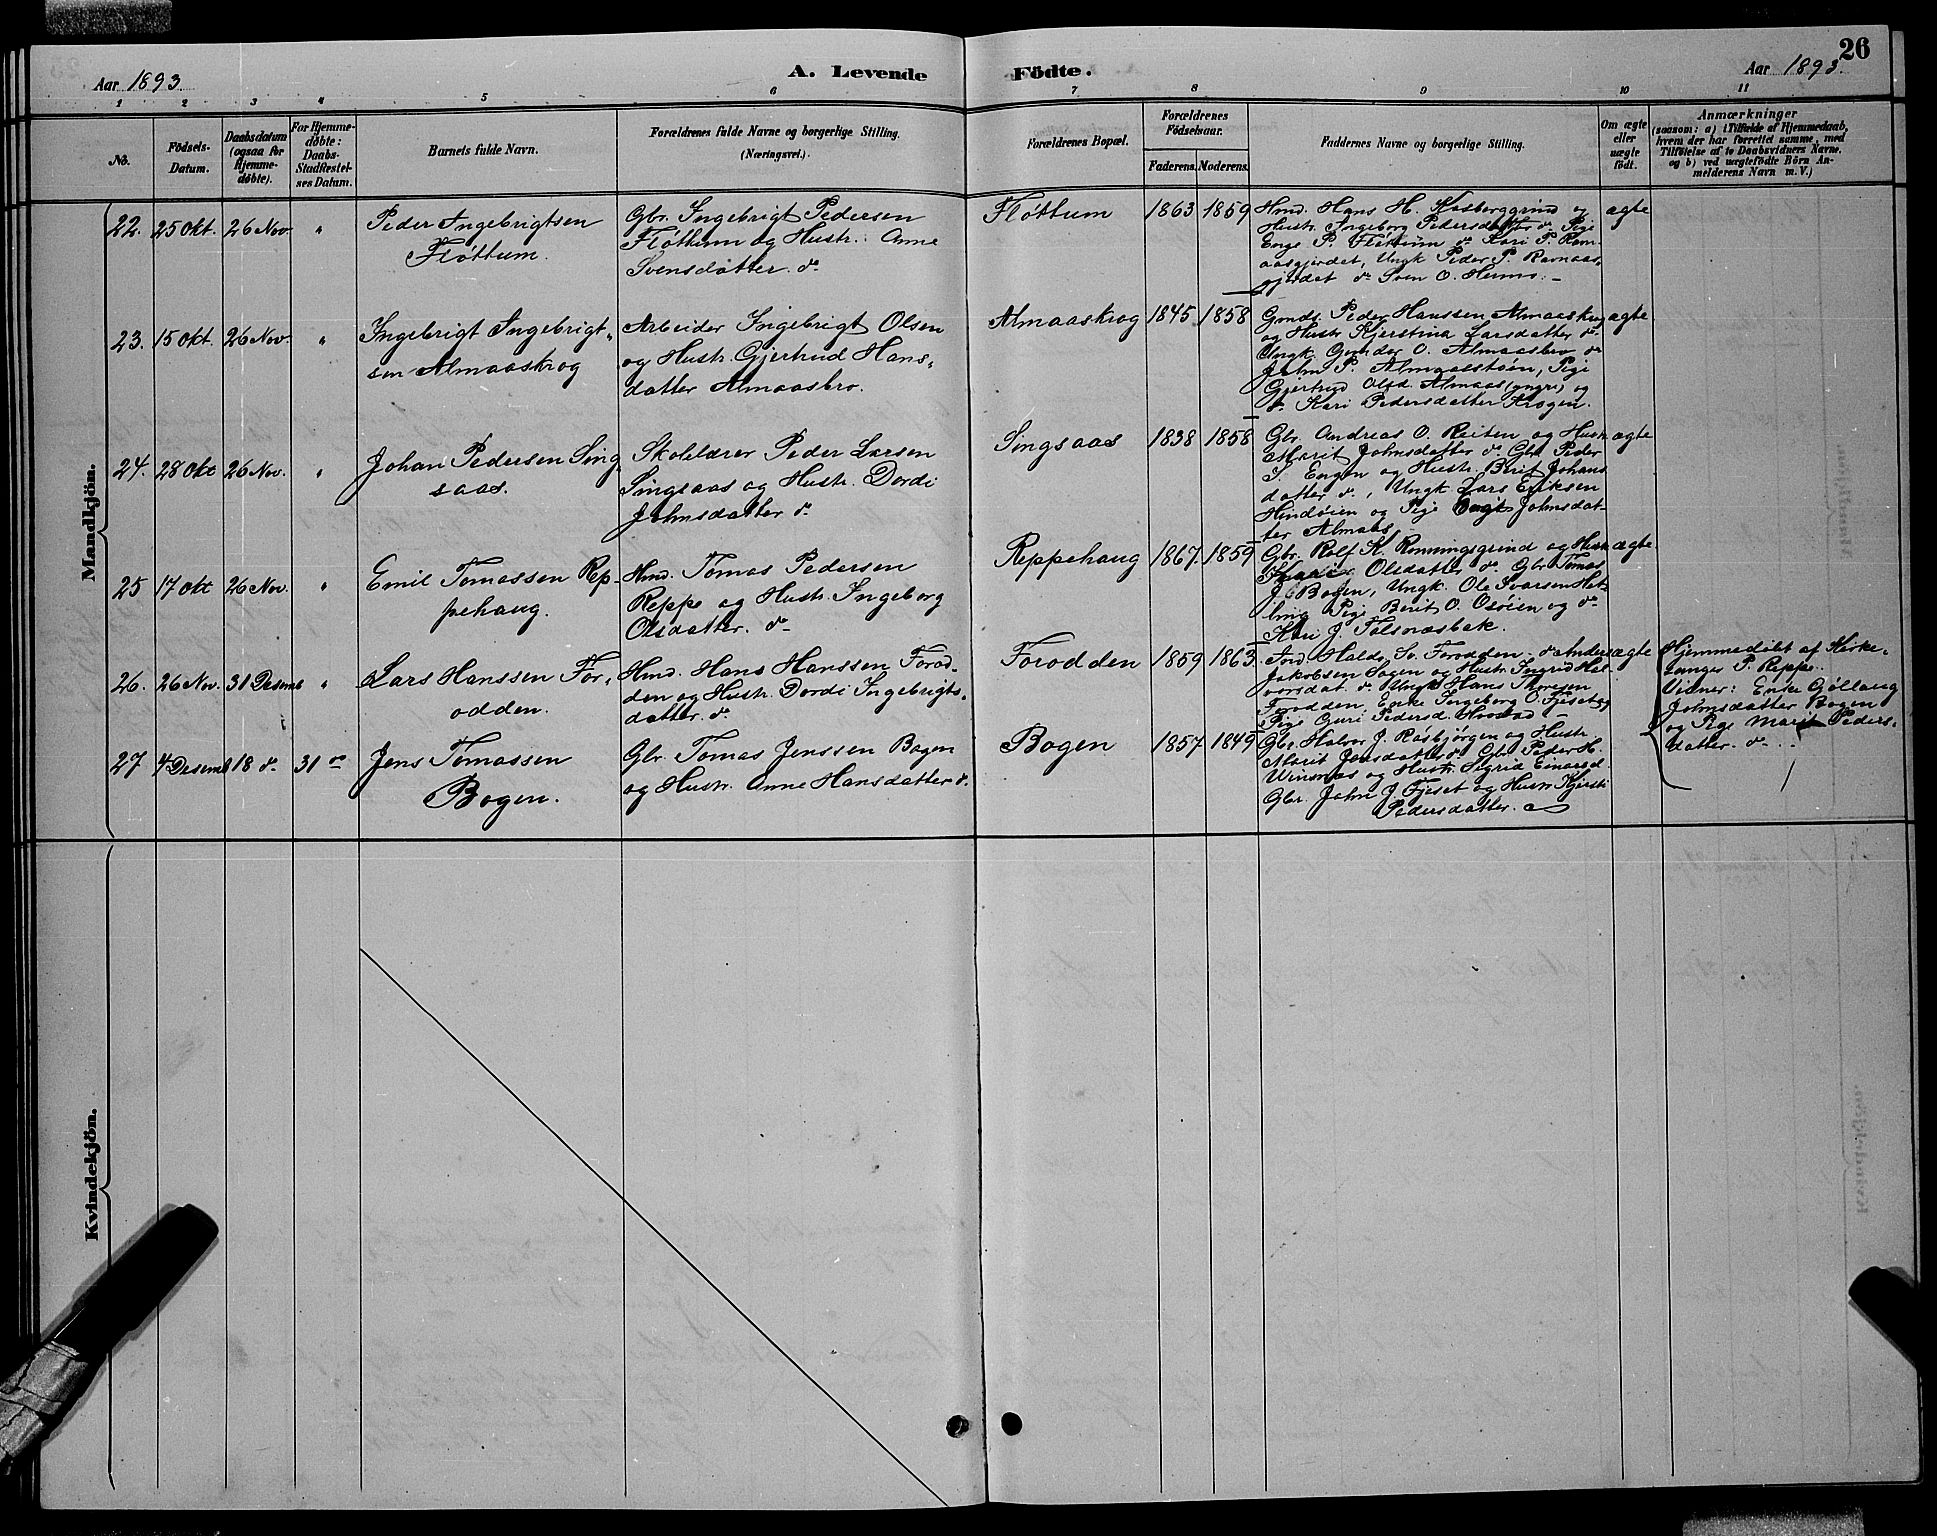 26
Aar 1893.
A. Levende
Födte.
Aar 1893.
1 2 3 4 5 6 7 8 9 10 11
No.
Födsels-
Datum.
Daabsdatum
(ogsaa for
Hjemme-
döbte).
For Hjemme-
döbte:
Daabs-
Stadfæstel-
ses Datum.
Barnets fulde Navn.
Forældrenes fulde Navne og borgerlige Stilling.
(Næringsvei.)
Forældrenes Bopæl.
Forældrenes
Födselsaar.
Faderens. Moderens.
Faddernes Navne og borgerlige Stilling.
Om ægte
eller
uægte
födt.
Anmærkninger
(saasom: a) i Tilfælde af Hjemmedaab,
hvem der har forrettet samme, med
Tilföielse af to Daabsvidners Navne,
og b) ved uægtefödte Börn An-
melderens Navn m. V.)
Mandkjön.
22. 25 Okt. 26 Nov. "
Peder Ingebrigtsen
Fløttum.
Gbr. Ingebrigt Pedersen
Fløttum og Hustr. Anne
Svensdatter. do
Fløttum
1863 1859
Hmd. Hans H. Kosberggrind og
Hustr. Ingeborg Pedersdatter do Pige
Enge P. Fløttum do Kari P. Ram-
aasgjerdet, Ungk Peder P. Ramaas-
gjerdet do Sven O. Hermo. –
ægte
23. 15 Okt. 26 Nov. "
Ingebrigt Ingebrigt-
sen Almaaskrog
Arbeider Ingebrigt Olsen
og Hustr. Gjertrud Hans-
datter Almaasbro.
Almaaskrog
1845 1858
Gmds. Peder Hanssen Almaaskrog
og Hustr Kjerstina Larsdatter do
Ungk. Gunder O. Almaasbro do
John P. Almaasstøen, Pige
Gjertrud Olsd. Almaas (yngre) og
do Kari Pedersdatter Krogen.
ægte
24. 28 Okt 26 Nov. "
Johan Pedersen Sing
saas.
Skolelærer Peder Larsen
Singsaas og Hustr. Dordi
Johnsdatter do
Singsaas
1838 1858
Gbr. Andreas O. Reiten og Hustr
Marit Johnsdatter do Gbr Peder
J. Engen og Hustr. Berit Johans
datter do, Ungk. Lars Eriksen
Hindøien og Pige Johnsdat-
ter Almaas
ægte
25 17 Okt 26 Nov. "
Emil Tomassen Rep-
pehaug.
Hmd. Tomas Pedersen
Reppe og Hustr. Ingeborg
Olsdatter. do
Reppehaug
1867. 1859
Gbr. Rolf K. Rønningsgrind og Hustr
Olsdatter do Gbr Tomas
J. Bogen, Ungk. Ole Ivarsen Het-
ling Pige Berit O. Osøien og do
Kari J. Folsnæsbak.
ægte
26. 26 Nov. 31 Desemb "
Lars Hanssen For-
odden.
Hmd. Hans Hanssen Forod-
den og Hustr. Dordi Ingebrigts-
datter. do
Forodden
1859 1863
Haldo Sv. Forodden. do Anders
Jakobsen Bogen og Hustr Ingrid Hal-
vorsdat. do Ungk Hans Thoresen
Forodden, Enke Ingeborg O. Fjeset og
Pige Guri Pedersd. Hovstad –
ægte
Hjemmedøbt af Kirke-
sanger P. Reppe.
Vidner: Enke Gøllaug
Johnsdatter Bogen
og Pige Marit Peders-
datter. do
27. 4 Desemb 18 do 31 do
Jens Tomassen
Bogen.
Gbr. Tomas Jenssen Bogen
og Hustr. Anne Hansdatter do
Bogen
1857 1849
Gbr. Halvor J. Rosbjørgen og Hustr
Marit Jensdatter do Gbr Peder H.
Winsnes og Hustr. Sigrid Einarsd.
Gbr. John J. Fjeset og Hustr Kjersti
Pedersdatter.
Kvindekjön.